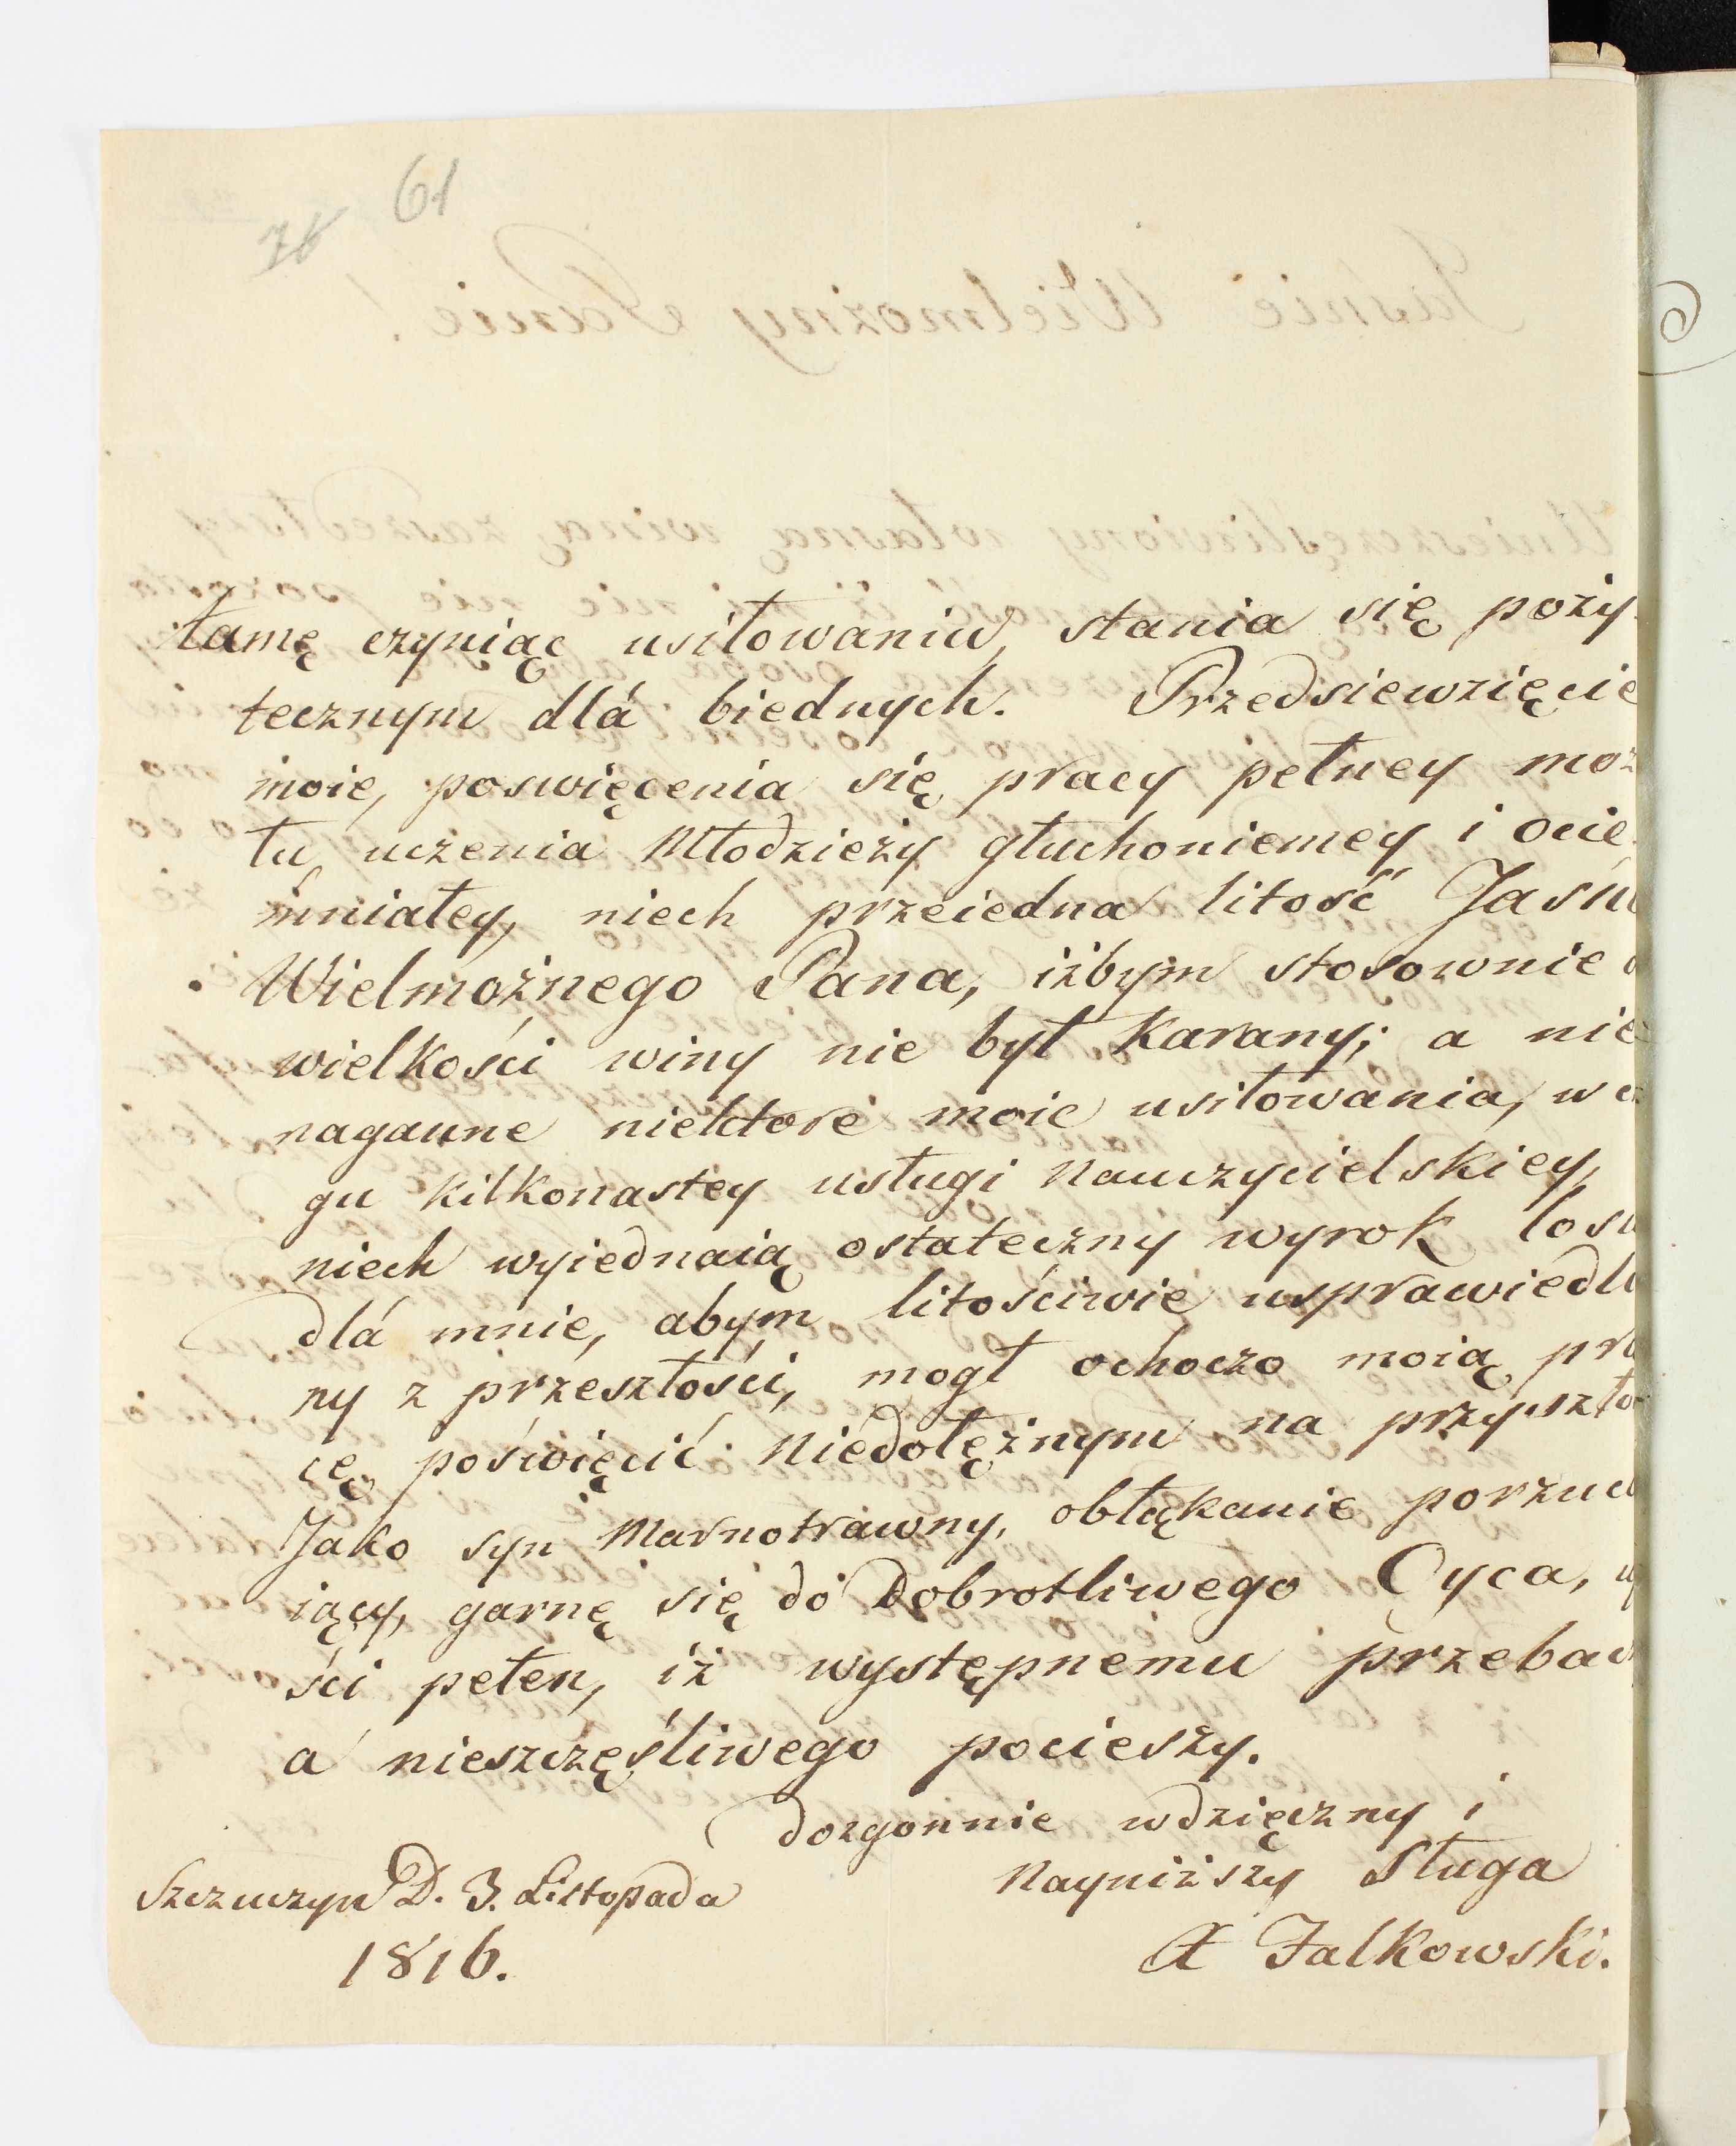 61
76
tamę czyniąc usiłowaniu, stania się poży-
tecznym dlá biednych. Przedsiewzięcie
moie, poswięcenia się pracy pełney moz
łu, uczenia Młodzieży głuchoniemey i ocie-
mniałey, niech przeiedna litość Jaśn
Wielmożnego Pana, iżbym stosownie
wielkości winy nie był karany; a nie
naganne niektore moie usiłowania, w c
gu kilkonastey usługi Nauczycielskiey,
niech wyiednaią ostateczny wyrok losu
dlá mnie, abym litościwie usprawiedli
ny z przeszłości, mogł ochoczo moią pra
cę poświęcić Niedołężnym na przyszło
Jako syn Marnotrawny, obłąkanie porzuc
iący, garnę się do Dobrotliwego Oyca, u
ści pełen, iż występnemu przebac
a nieszczęśliwego pocieszy.
dozgonnie wdzięczny i
Nayniższy Sługa
Szczuczyn D. 3. Listopada
1816.
A Falkowski.